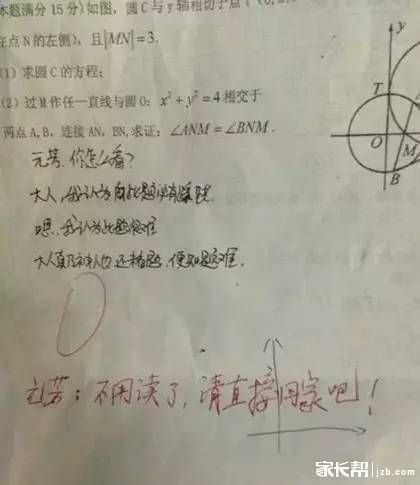 本题满分15分)如图，圆C与y轴相切于点T(0,2
在点N的左侧)，且|MN|=3.
(1)求圆C的方程；
(2)过M作任一直线与圆O：x²+y²=4相交于
两点A,B，连接AN，BN,求证：∠ANM=∠BNM.
y
T
O
M
B
元芳,你怎么看?
大人,我认为此题必有蹊跷.
嗯,我认为此题很难
大人真乃神人也,还未看题,便知题难.
0
元芳：不用读了，请直接回家吧！
家长帮 jzb.com